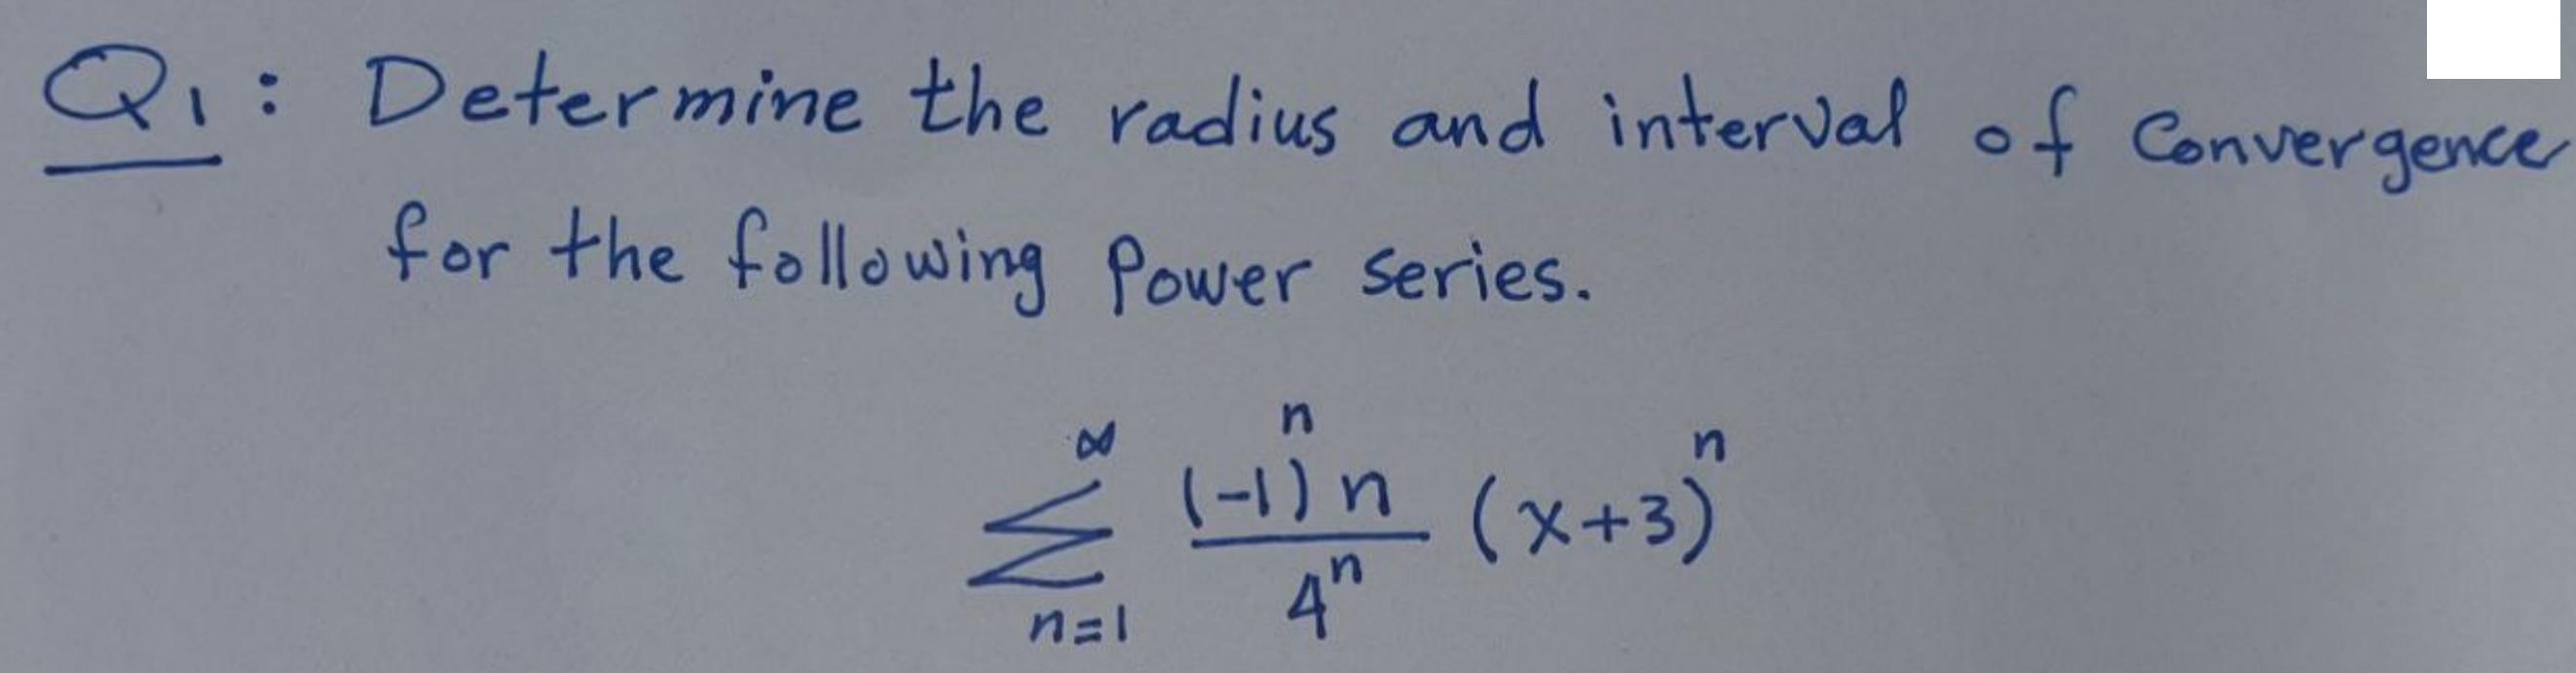 Q1: Determine the radius and interval of Convergence
for the following Power series.
$\sum_{n=1}^{\infty} \frac{(-1)^n n}{4^n} (x+3)^n$